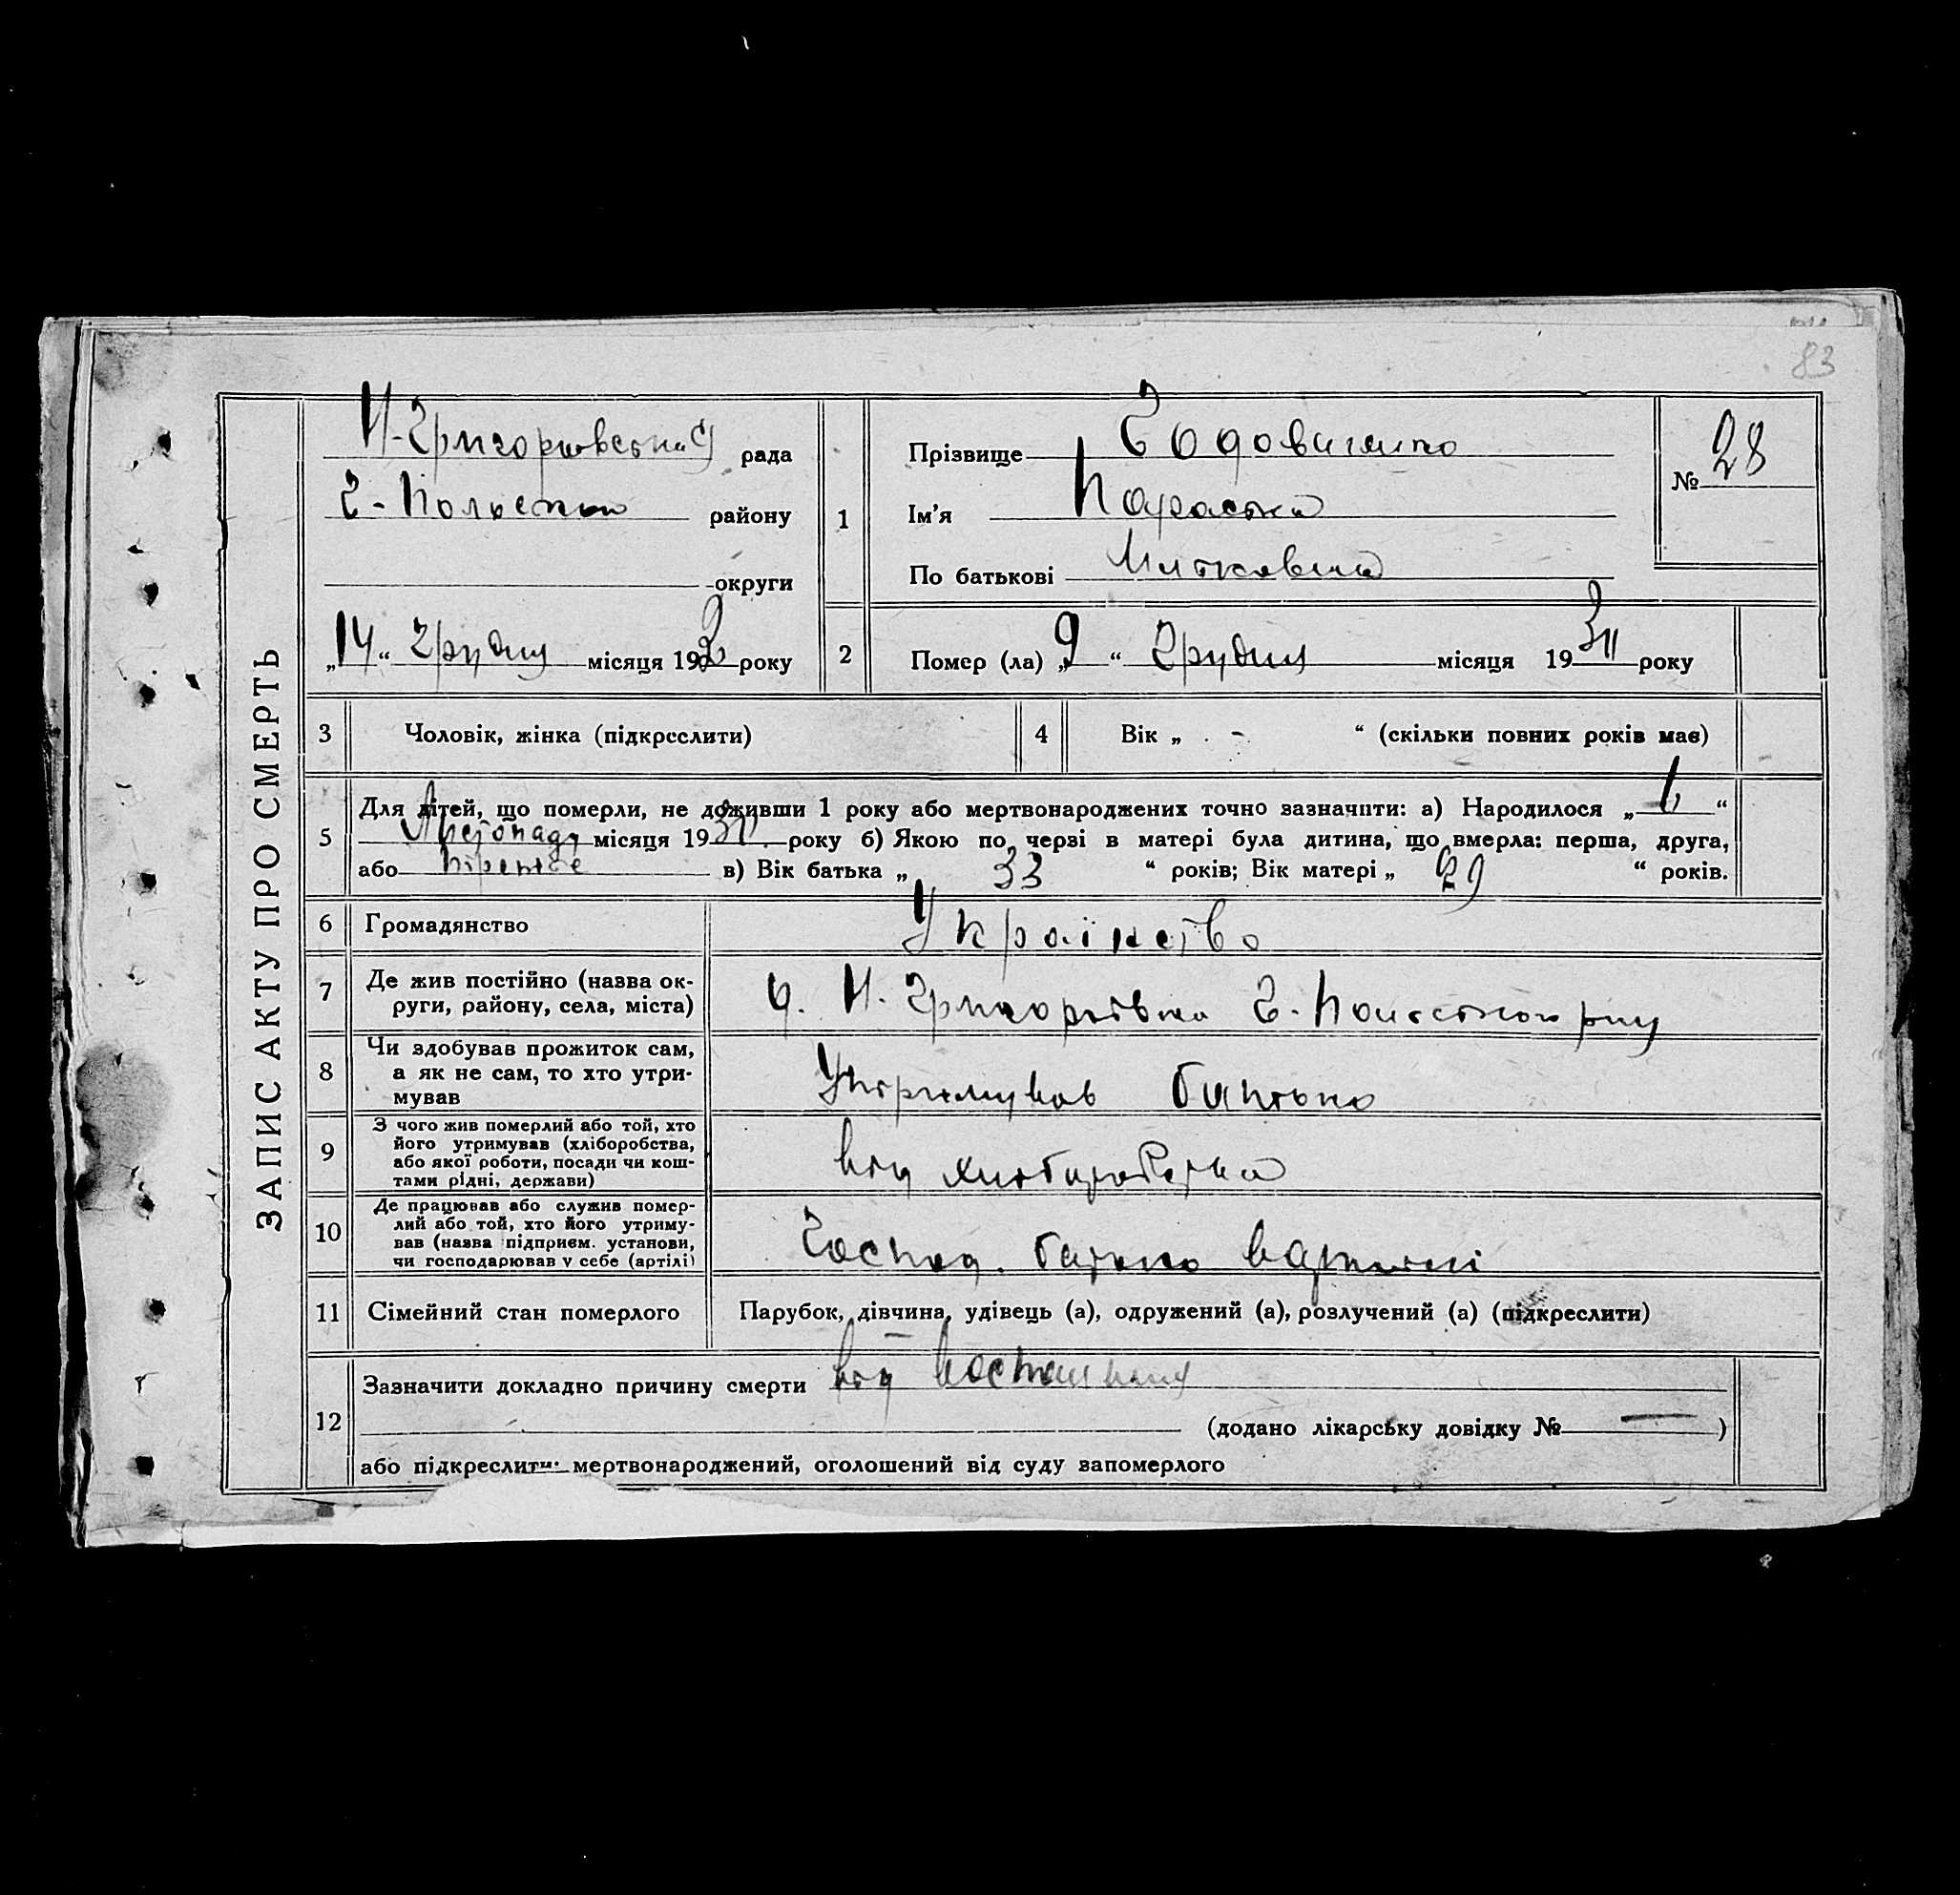 83
ЗАПИС АКТУ ПРО СМЕРТЬ
Н-Григорівська рада
Г- району
округи
„14“ Грудня місяця 193 року
1
Прізвище
Ім'я Параска
По батькові
№ 28
2
Помер (ла) „9“ Грудня місяця 19 року
3 Чоловік, жінка (підкреслити)
4 Вік „ - “ (скільки повних років має)
5 Для дітей, що померли, не доживши 1 року або мертвонароджених точно зазначити: а) Народилося „ “
Листопаду місяця 19 року б) Якою по черзі в матері була дитина, що вмерла: перша, друга,
або третє в) Вік батька „ 33 “ років; Вік матері „ 29 “ років.
6 Громадянство Українство
7 Де жив постійно (назва ок-
руги, району, села, міста)
Н. Григорівка Г.
8 Чи здобував прожиток сам,
а як не сам, то хто утри-
мував
Утримував батько
9 З чого жив померлий або той, хто
його утримував (хліборобства,
або якої роботи, посади чи кош-
тами рідні, держави)
від хліборобства
10 Де працював або служив помер-
лий або той, хто його утриму-
вав (назва підприєм. установи,
чи господарював у себе (артілі)
Господ. батько в артілі
11 Сімейний стан померлого Парубок, дівчина, удівець (а), одружений (а), розлучений (а) (підкреслити)
12 Зазначити докладно причину смерти від
(додано лікарську довідку № — )
або підкреслити: мертвонароджений, оголошений від суду запомерлого